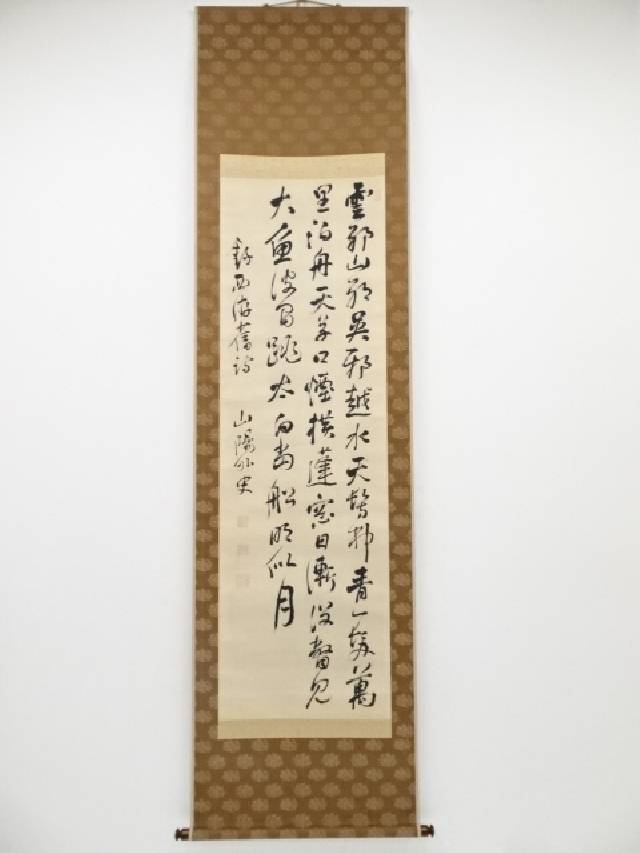 雲邪山邪呉邪越水天髣髴青一髪萬
里泊舟天草口煙横蓬窓日漸没瞥見
大魚波間跳太白當船明似月
録西游舊詩 山陽外史